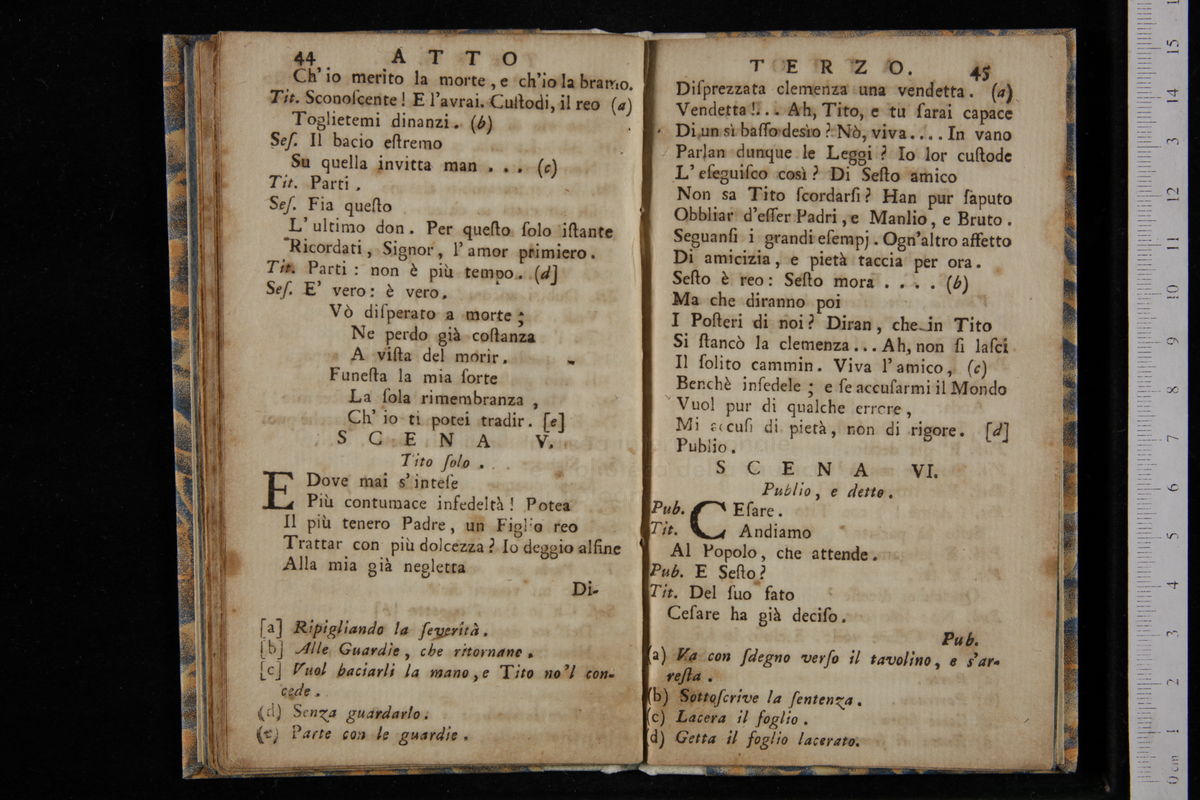 44 ATTO
Ch' io merito la morte, e ch'io la bramo.
Tit. Sconoſcente! E l'avrai. Cuſtodi, il reo (a)
Toglietemi dinanzi. (b)
Seſ. Il bacio eſtremo
Su quella invitta man . . . (c)
Tit. Parti.
Seſ. Fia queſto
L' ultimo don. Per queſto ſolo iſtante
Ricordati, Signor, l' amor primiero.
Tit. Parti: non è più tempo. (d]
Seſ. E' vero: è vero.
Vò diſperato a morte;
Ne perdo già coſtanza
A viſta del morir.
Funeſta la mia ſorte
La ſola rimembranza,
Ch' io ti potei tradir. [e]
SCENA V.
Tito ſolo.
E Dove mai s' inteſe
Più contumace infedeltà! Potea
Il più tenero Padre, un Figlio reo
Trattar con più dolcezza? Io deggio alfine
Alla mia già negletta
Di-
[a] Ripigliando la ſeverità.
[b] Alle Guardie, che ritornano.
[c] Vuol baciarli la mano, e Tito no'l con-
cede.
(d) Senza guardarlo.
(e) Parte con le guardie.
TERZO. 45
Diſprezzata clemenza una vendetta. (a)
Vendetta!... Ah, Tito, e tu ſarai capace
Di un sì baſſo desìo? Nò, viva.... In vano
Parlan dunque le Leggi? Io lor cuſtode
L' eſeguiſco così? Di Seſto amico
Non sa Tito ſcordarſi? Han pur ſaputo
Obbliar d'eſſer Padri, e Manlio, e Bruto.
Seguanſi i grandi eſempj. Ogn'altro affetto
Di amicizia, e pietà taccia per ora.
Seſto è reo: Seſto mora . . . . (b)
Ma che diranno poi
I Poſteri di noi? Diran, che in Tito
Si ſtancò la clemenza... Ah, non ſi laſci
Il ſolito cammin. Viva l' amico, (c)
Benchè infedele; e ſe accuſarmi il Mondo
Vuol pur di qualche errore,
Mi accuſi di pietà, non di rigore. [d]
Publio.
SCENA VI.
Publio, e detto.
Pub. CEſare.
Tit. Andiamo
Al Popolo, che attende.
Pub. E Seſto?
Tit. Del ſuo fato
Ceſare ha già deciſo.
Pub.
(a) Va con ſdegno verſo il tavolino, e s'ar-
reſta.
(b) Sottoſcrive la ſentenza.
(c) Lacera il foglio.
(d) Getta il foglio lacerato.
15
14
3
12
11
10
9
8
7
6
5
4
3
2
1
0 cm